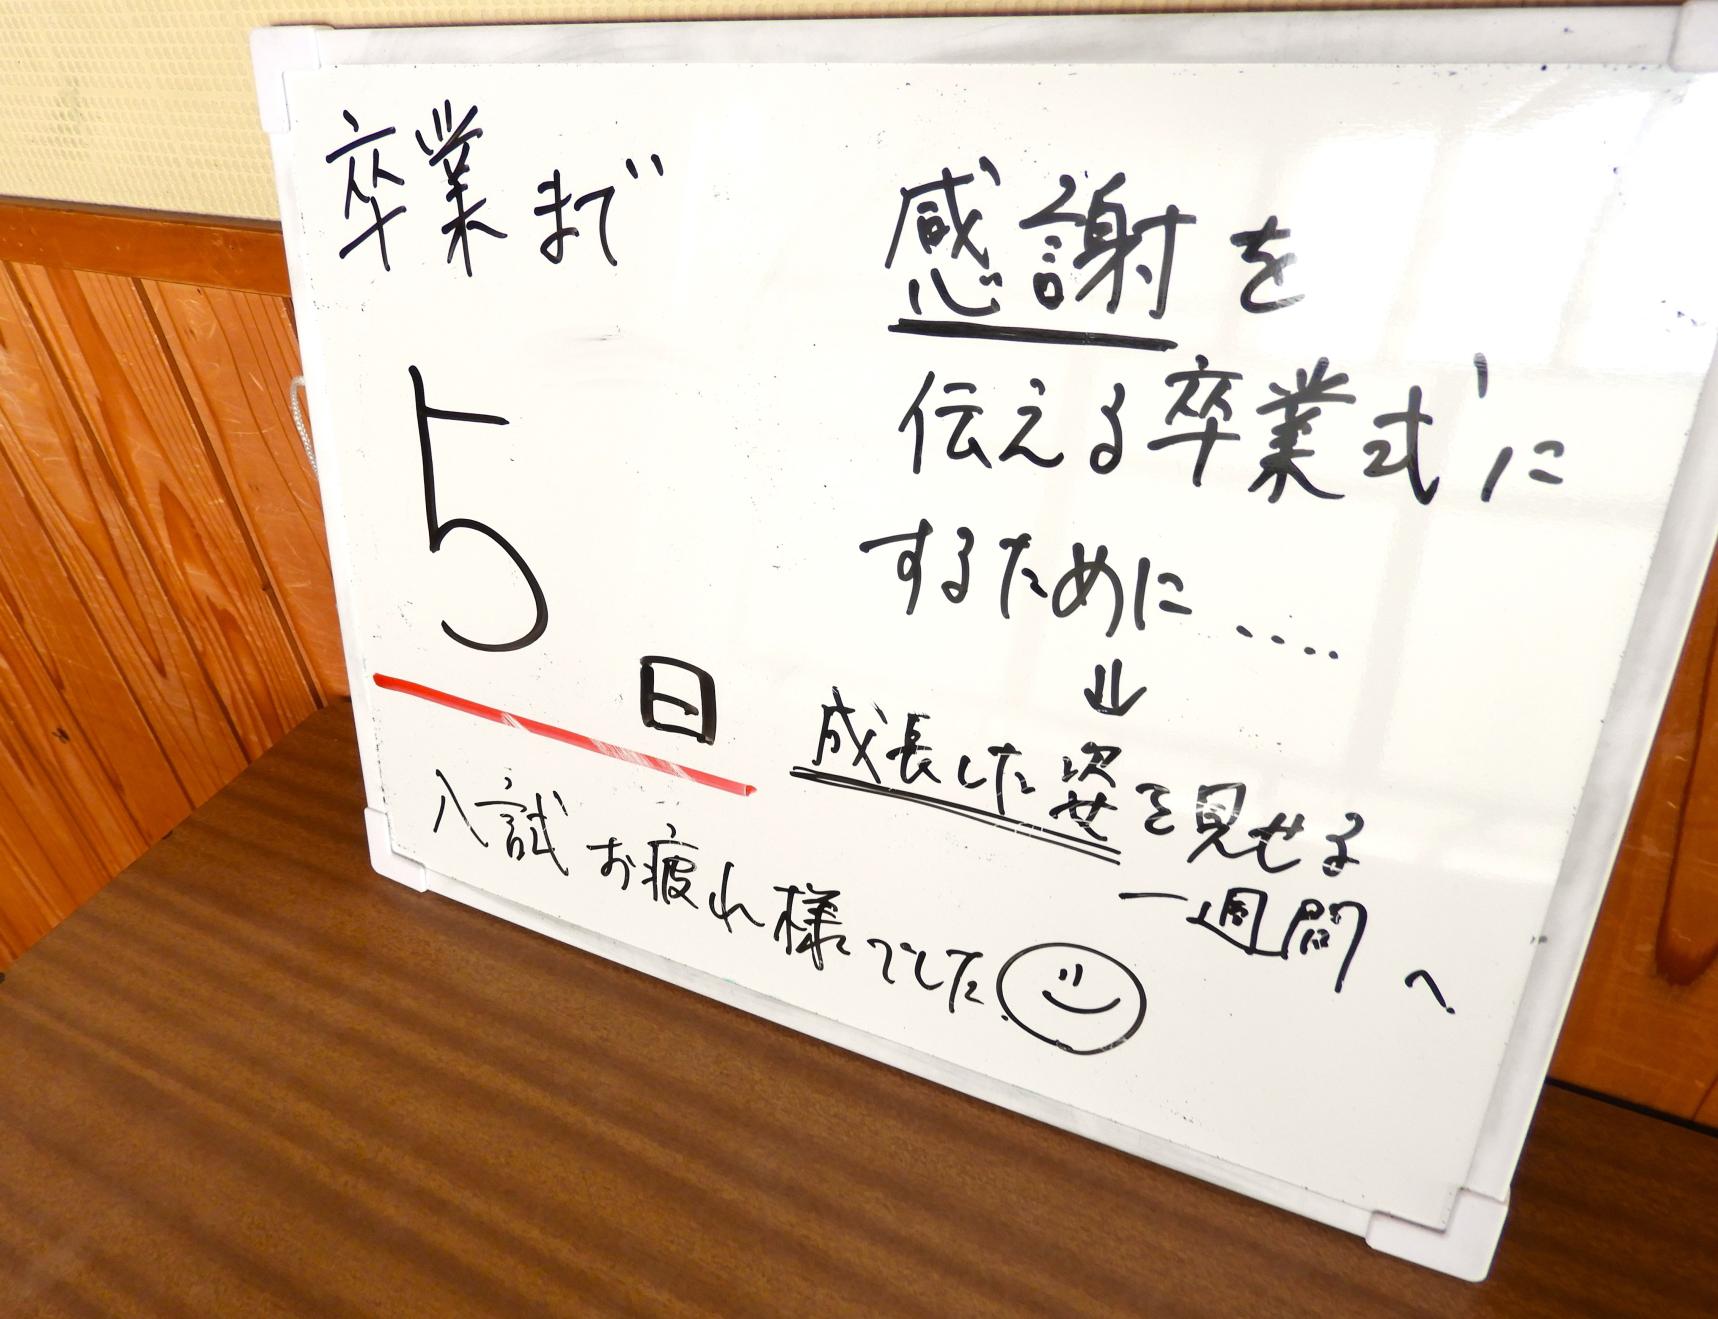 卒業まで
5日
入試お疲れ様でした
感謝を
伝える卒業式に
するために.....
↓
成長した姿を見せる
一週間へ